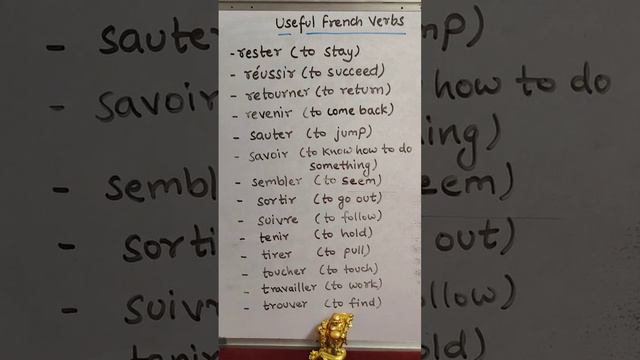 Useful French Verbs
- rester (to stay)
- réussir (to succeed)
- retourner (to return)
- revenir (to come back)
- sauter (to jump)
- savoir (to know how to do
something)
- sembler (to seem)
- sortir (to go out)
- suivre (to follow)
- tenir (to hold)
- tirer (to pull)
- toucher (to touch)
- travailler (to work)
- trouver (to find)